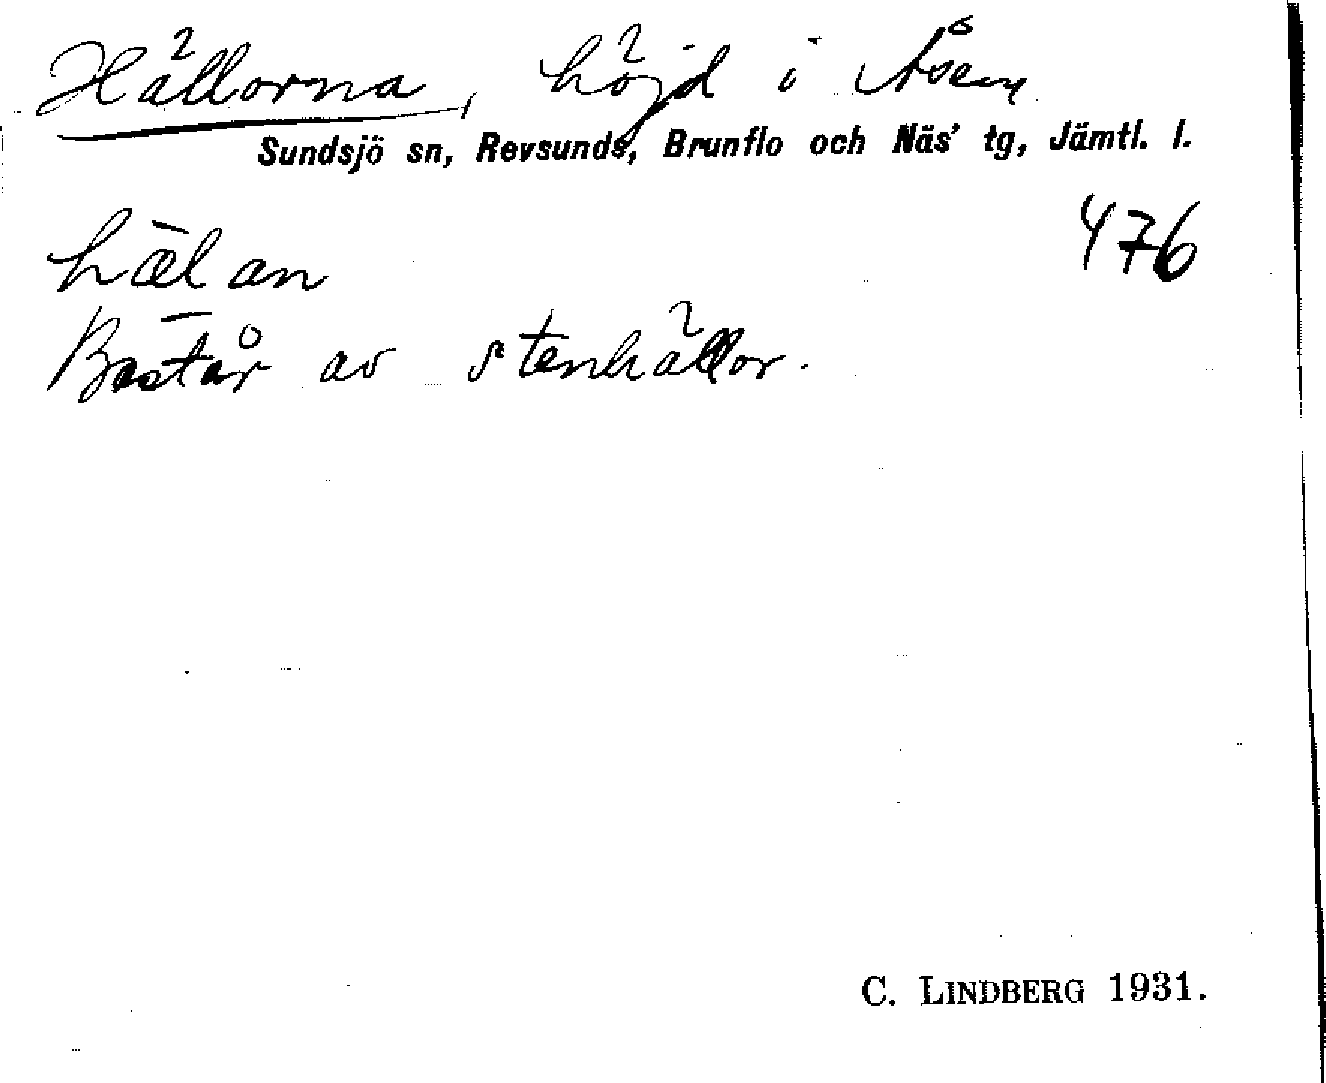 Hällorna, höjd i Åsen
Sundsjö sn, Revsunds, Brunflo och Näs' tg, Jämtl. l.
476
hæ̅lan
Består av stenhällor.
C. LINDBERG 1931.